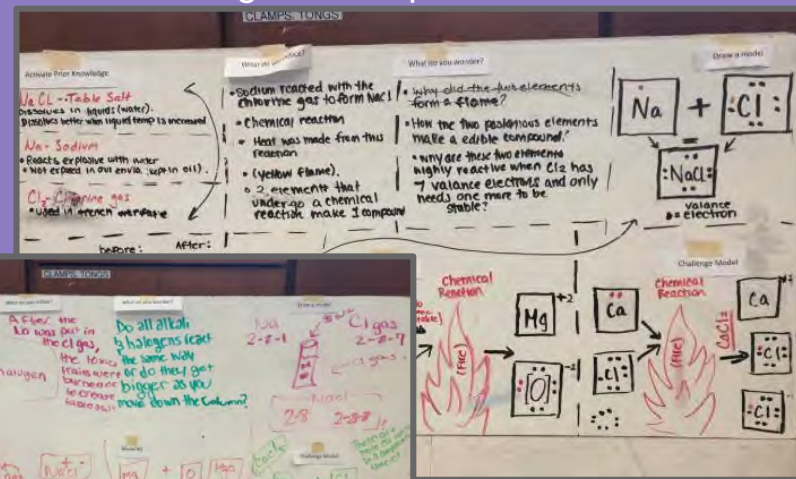 CLAMPS, TONGS
Activate Prior Knowledge
Na CL - Table Salt
Dissolves in liquids (water).
Dissolves better when liquid temp is increased
Na - Sodium
• Reacts explosive with water
• Not exposed in our enviro. (kept in oil).
Cl2 - Chlorine gas
• used in trench warfare
before: After:
What do you
• Sodium reacted with the
chlorine gas to form NaCl
• Chemical reaction
• Heat was made from this
reaction
• (yellow flame).
• 2 elements that
undergo a chemical
reaction make 1 compound
What do you wonder?
• Why did the two elements
form a flame?
• How the two poisonous elements
make a edible compound?
• why are these two elements
highly reactive when Cl2 has
7 valance electrons and only
needs one more to be
stable?
Draw a model
Na + Cl
NaCl
valance
= electron
Chemical
Reaction
(Fire)
Mg +2
O -2
Challenge Model
Ca
Cl
Chemical
Reaction
(Fire)
CaCl2
Ca +2
Cl
Cl
CLAMPS, TONGS
What do you wonder?
Draw a model
After the
Na was put in
the cl gas,
the toxic
traits were
burned
to create
halogen
Do all alkali
& halogens react
the same way
or do they get
bigger as you
move down the column?
Na
2-8-1
Cl gas
2-8-7
gas
NaCl
2-8 2-8-8
NaCl
Mg + O
Challenge Model